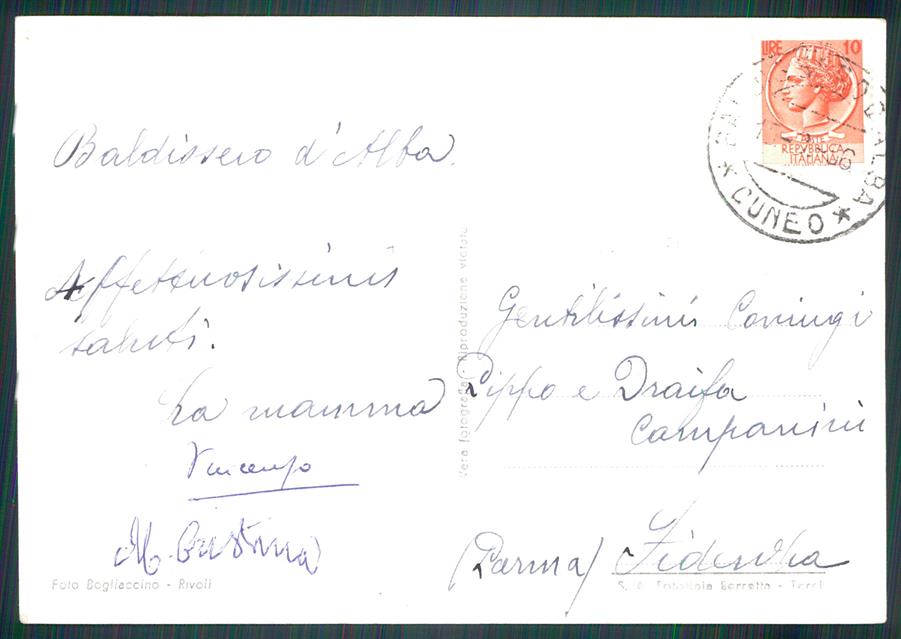 LIRE 10
POSTE
REPVBBLICA
ITALIANA
D'ALBA
* CUNEO *
Baldissero d'Alba.
Affettuosissimi
saluti.
La mamma
Vincenzo
M. Cristina
Foto Bogliaccino - Rivoli
Vera fotografia - Riproduzione vietata
Gentilissimi Coniugi
Pippo e Draifa
Campanini
(Parma) Fidenza
S. A. Fototipia Berretta - Terni